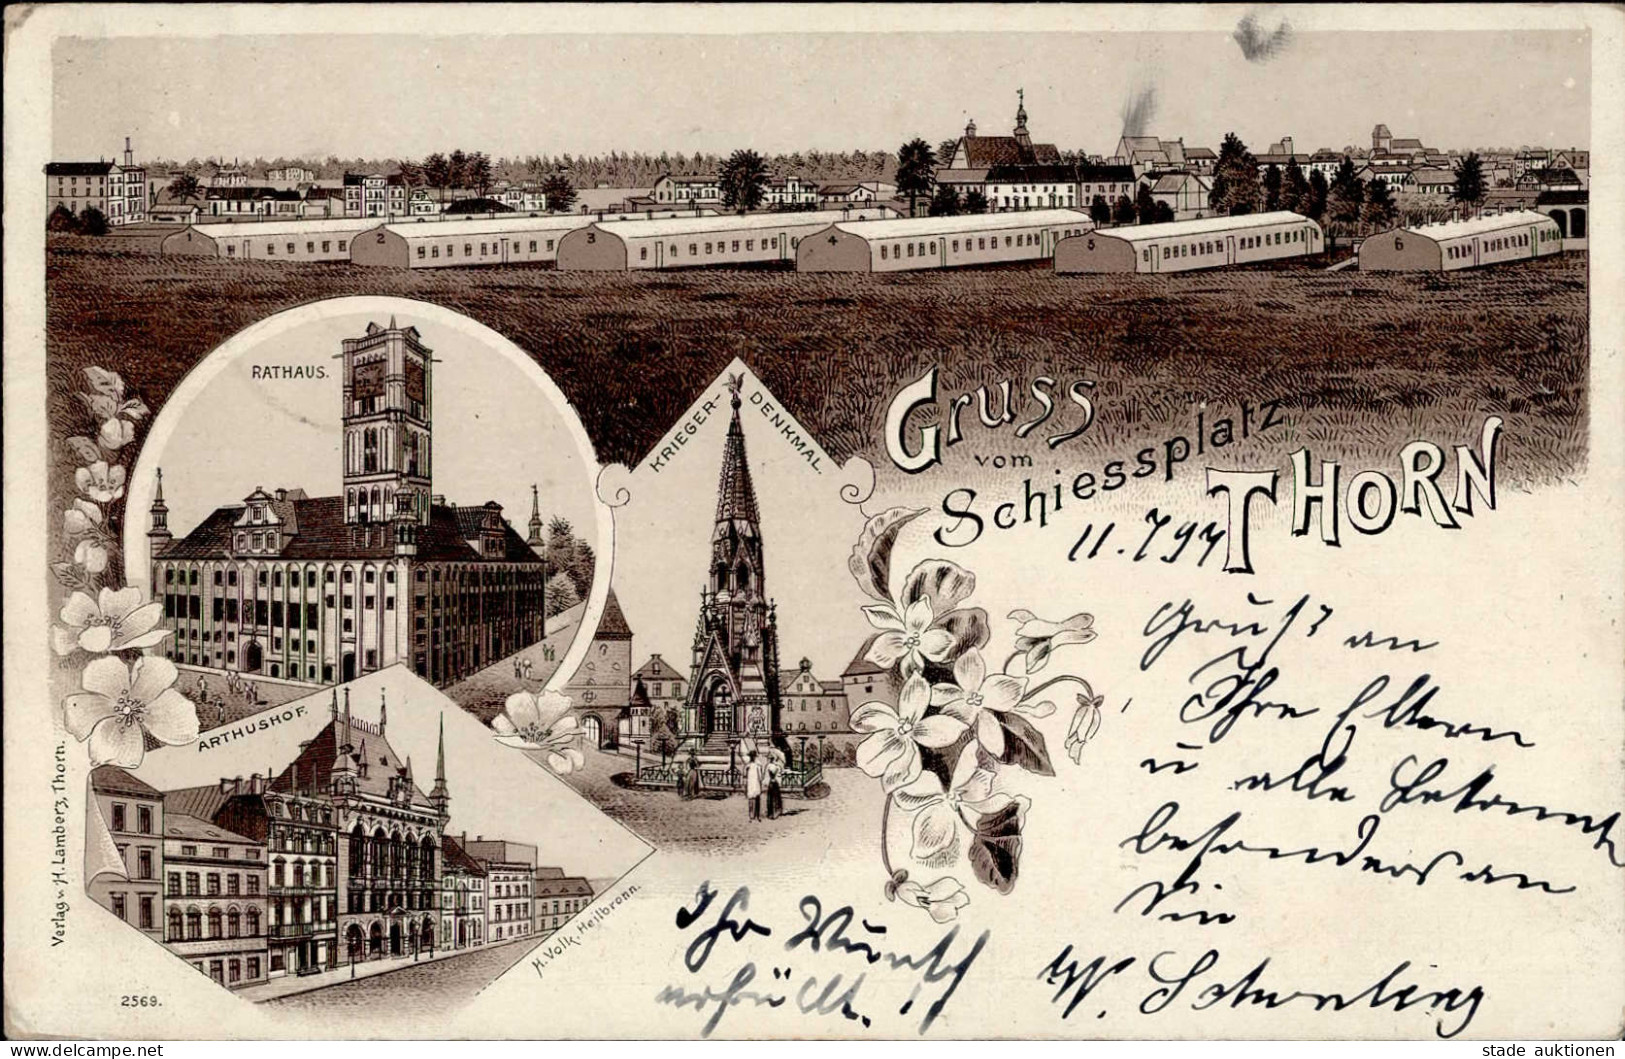 1 2 3 4 5 6
RATHAUS.
KRIEGER-
DENKMAL.
Gruss
vom
Schiessplatz
THORN
11. 7 97
Gruß an
Ihre Eltern
u alle Bekannte
besonders an
Sie
ARTHUSHOF.
Ihr Wunsch
erfüllt.
W.
Verlag v. H. Lambert, Thorn.
H. Volk. Heilbronn.
2569.
stade auktionen